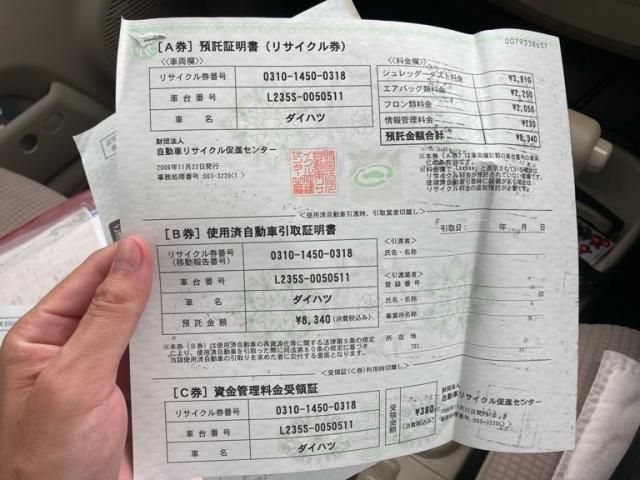 0079338637
[A券] 預託証明書 (リサイクル券)
〈車両欄〉
リサイクル券番号 0310-1450-0318
車台番号 L235S-0050511
車名 ダイハツ
〈料金欄〉
シュレッダーダスト料金 ¥3,810
エアバッグ類料金 ¥2,250
フロン類料金 ¥2,050
情報管理料金 ¥230
預託金額合計 ¥8,340
財団法人
自動車リサイクル促進センター
2006年11月22日発行
事務処理番号:003-3220(1)
〈使用済自動車引渡時、引取業者切離し〉
[B券] 使用済自動車引取証明書
引取日: 年 月 日
リサイクル券番号
(移動報告番号) 0310-1450-0318
車台番号 L235S-0050511
車名 ダイハツ
預託金額 ¥8,340 (消費税込み)
〈引渡者〉
氏名・名称
〈引取業者〉
登録番号
氏名・名称
事業所名
所在地
TEL
※本券(B券)は使用済自動車の再資源化等に関する法律第9条の規定
により、使用済自動車を引取った際に同法第80条の規定に基づき
当該使用済自動車の引取りを求めた者に交付する書面となります。
〈受領証(C券)利用時切離し〉
[C券] 資金管理料金受領証
リサイクル券番号 0310-1450-0318
車台番号 L235S-0050511
車名 ダイハツ
受領金額 ¥380
(消費税込み)
財団法人
自動車リサイクル促進センター